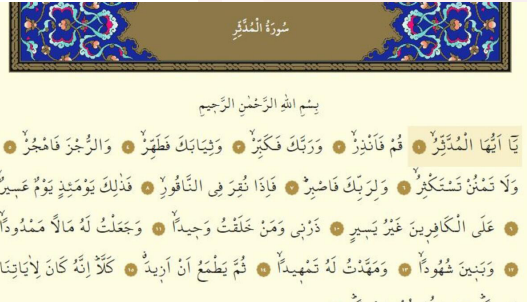 سُورَةُ الْمُدَّثِّرِ
بِسْمِ اللهِ الرَّحْمٰنِ الرَّحِيمِ
يَٓا اَيُّهَا الْمُدَّثِّرُۙ ۝١ قُمْ فَاَنْذِرْۙ ۝٢ وَرَبَّكَ فَكَبِّرْۙ ۝٣ وَثِيَابَكَ فَطَهِّرْۙ ۝٤ وَالرُّجْزَ فَاهْجُرْۙ ۝٥
وَلَا تَمْنُنْ تَسْتَكْثِرُۙ ۝٦ وَلِرَبِّكَ فَاصْبِرْۜ ۝٧ فَاِذَا نُقِرَ فِي النَّاقُورِۙ ۝٨ فَذٰلِكَ يَوْمَئِذٍ يَوْمٌ عَسِيرٌ
۝٩ عَلَى الْكَافِرِينَ غَيْرُ يَسِيرٍ ۝١٠ ذَرْنِي وَمَنْ خَلَقْتُ وَحِيداًۙ ۝١١ وَجَعَلْتُ لَهُ مَالاً مَمْدُوداًۙ
۝١٢ وَبَنِينَ شُهُوداًۙ ۝١٣ وَمَهَّدْتُ لَهُ تَمْهِيداًۙ ۝١٤ ثُمَّ يَطْمَعُ اَنْ اَزِيدَۗ ۝١٥ كَلَّاۜ اِنَّهُ كَانَ لِاٰيَاتِنَا